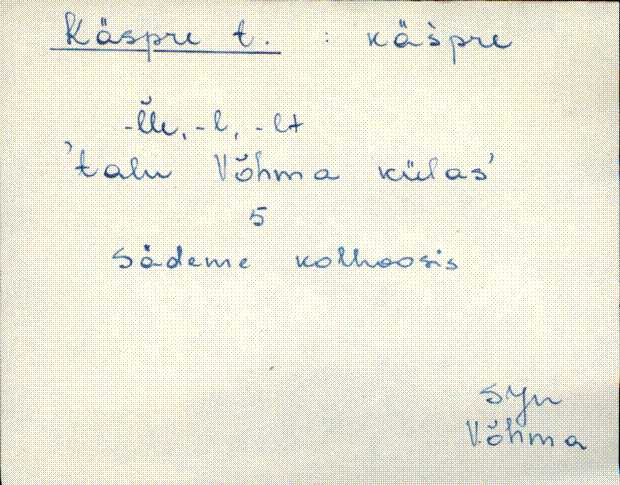 Käspre t. : käšpre
-l̆le, -l, -lt
'talu Võhma külas'
5
Sädeme kolhoosis
SJn
Võhma